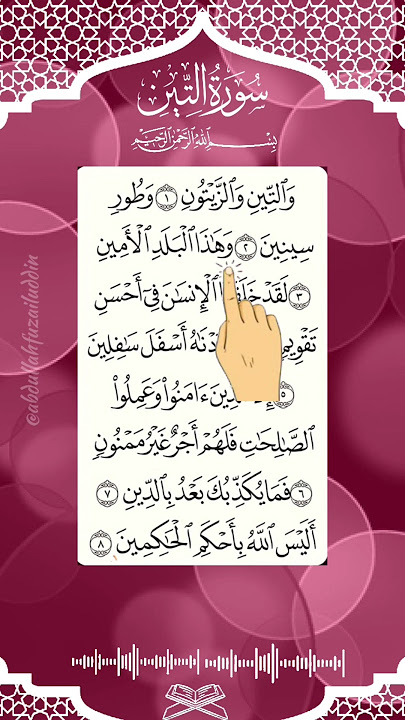 سُورَةُ التِّينِ
بِسْمِ اللَّهِ الرَّحْمَٰنِ الرَّحِيمِ
وَالتِّينِ وَالزَّيْتُونِ ١ وَطُورِ
سِينِينَ ٢ وَهَٰذَا الْبَلَدِ الْأَمِينِ
٣ لَقَدْ الْإِنسَٰنَ فِىٓ أَحْسَنِ
أَسْفَلَ سَٰفِلِينَ
٥ ءَامَنُوا۟ وَعَمِلُوا۟
الصَّٰلِحَٰتِ فَلَهُمْ أَجْرٌ غَيْرُ مَمْنُونٍ
٦ فَمَا يُكَذِّبُكَ بَعْدُ بِالدِّينِ ٧
أَلَيْسَ اللَّهُ بِأَحْكَمِ الْحَٰكِمِينَ ٨
@abdullahfuzailuddin